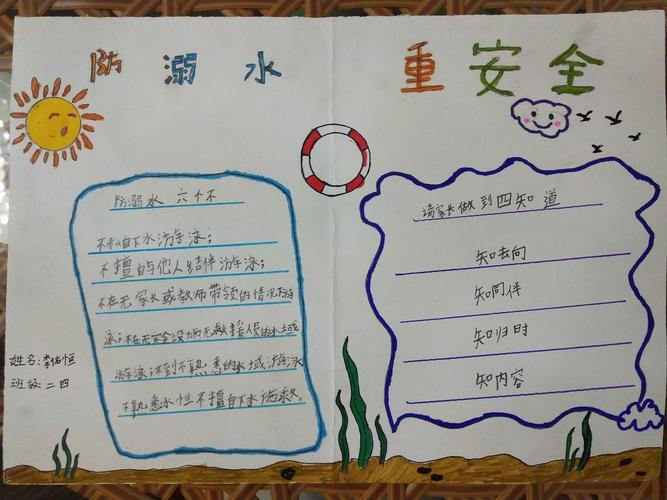 防溺水 重安全
防溺水 六个不
不私自下水游泳；
不擅自与他人结伴游泳；
不在无家长或教师带领的情况下游
泳；不在无安全设施无救援人员的水域
游泳；不到不熟悉的水域游泳
不熟悉水性不擅自下水施救。
姓名：李佑恒
班级：二四
请家长做到四知道
知去向
知同伴
知归时
知内容